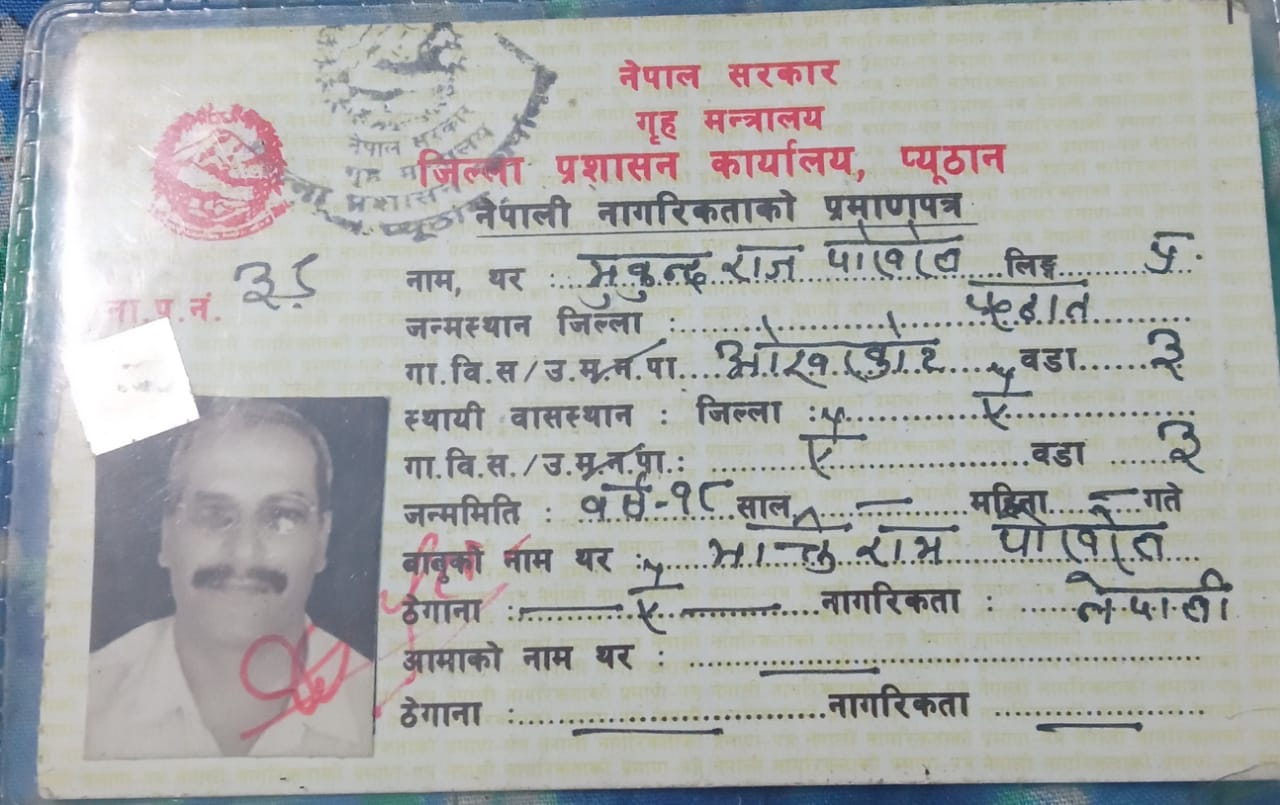 नेपाल सरकार
गृह मन्त्रालय
जिल्ला प्रशासन कार्यालय, प्यूठान
नेपाली नागरिकताको प्रमाणपत्र
नेपाल सरकार
गृह
प्रशासन
प्यूठा
ना.प.नं. ३८
नाम, थर : मुकुन्द राज पोखरेल लिङ्ग पु.
जन्मस्थान जिल्ला :
गा.वि.स/उ.म.न.पा. ओखरकोट वडा ३
स्थायी वासस्थान : जिल्ला : ऐ
गा.वि.स./उ.म.न.पा.: ऐ वडा ३
जन्ममिति : साल महिना गते
बाबुको नाम थर : राम पोखरेल
ठेगाना : ऐ नागरिकता : नेपाली
आमाको नाम थर :
ठेगाना : नागरिकता